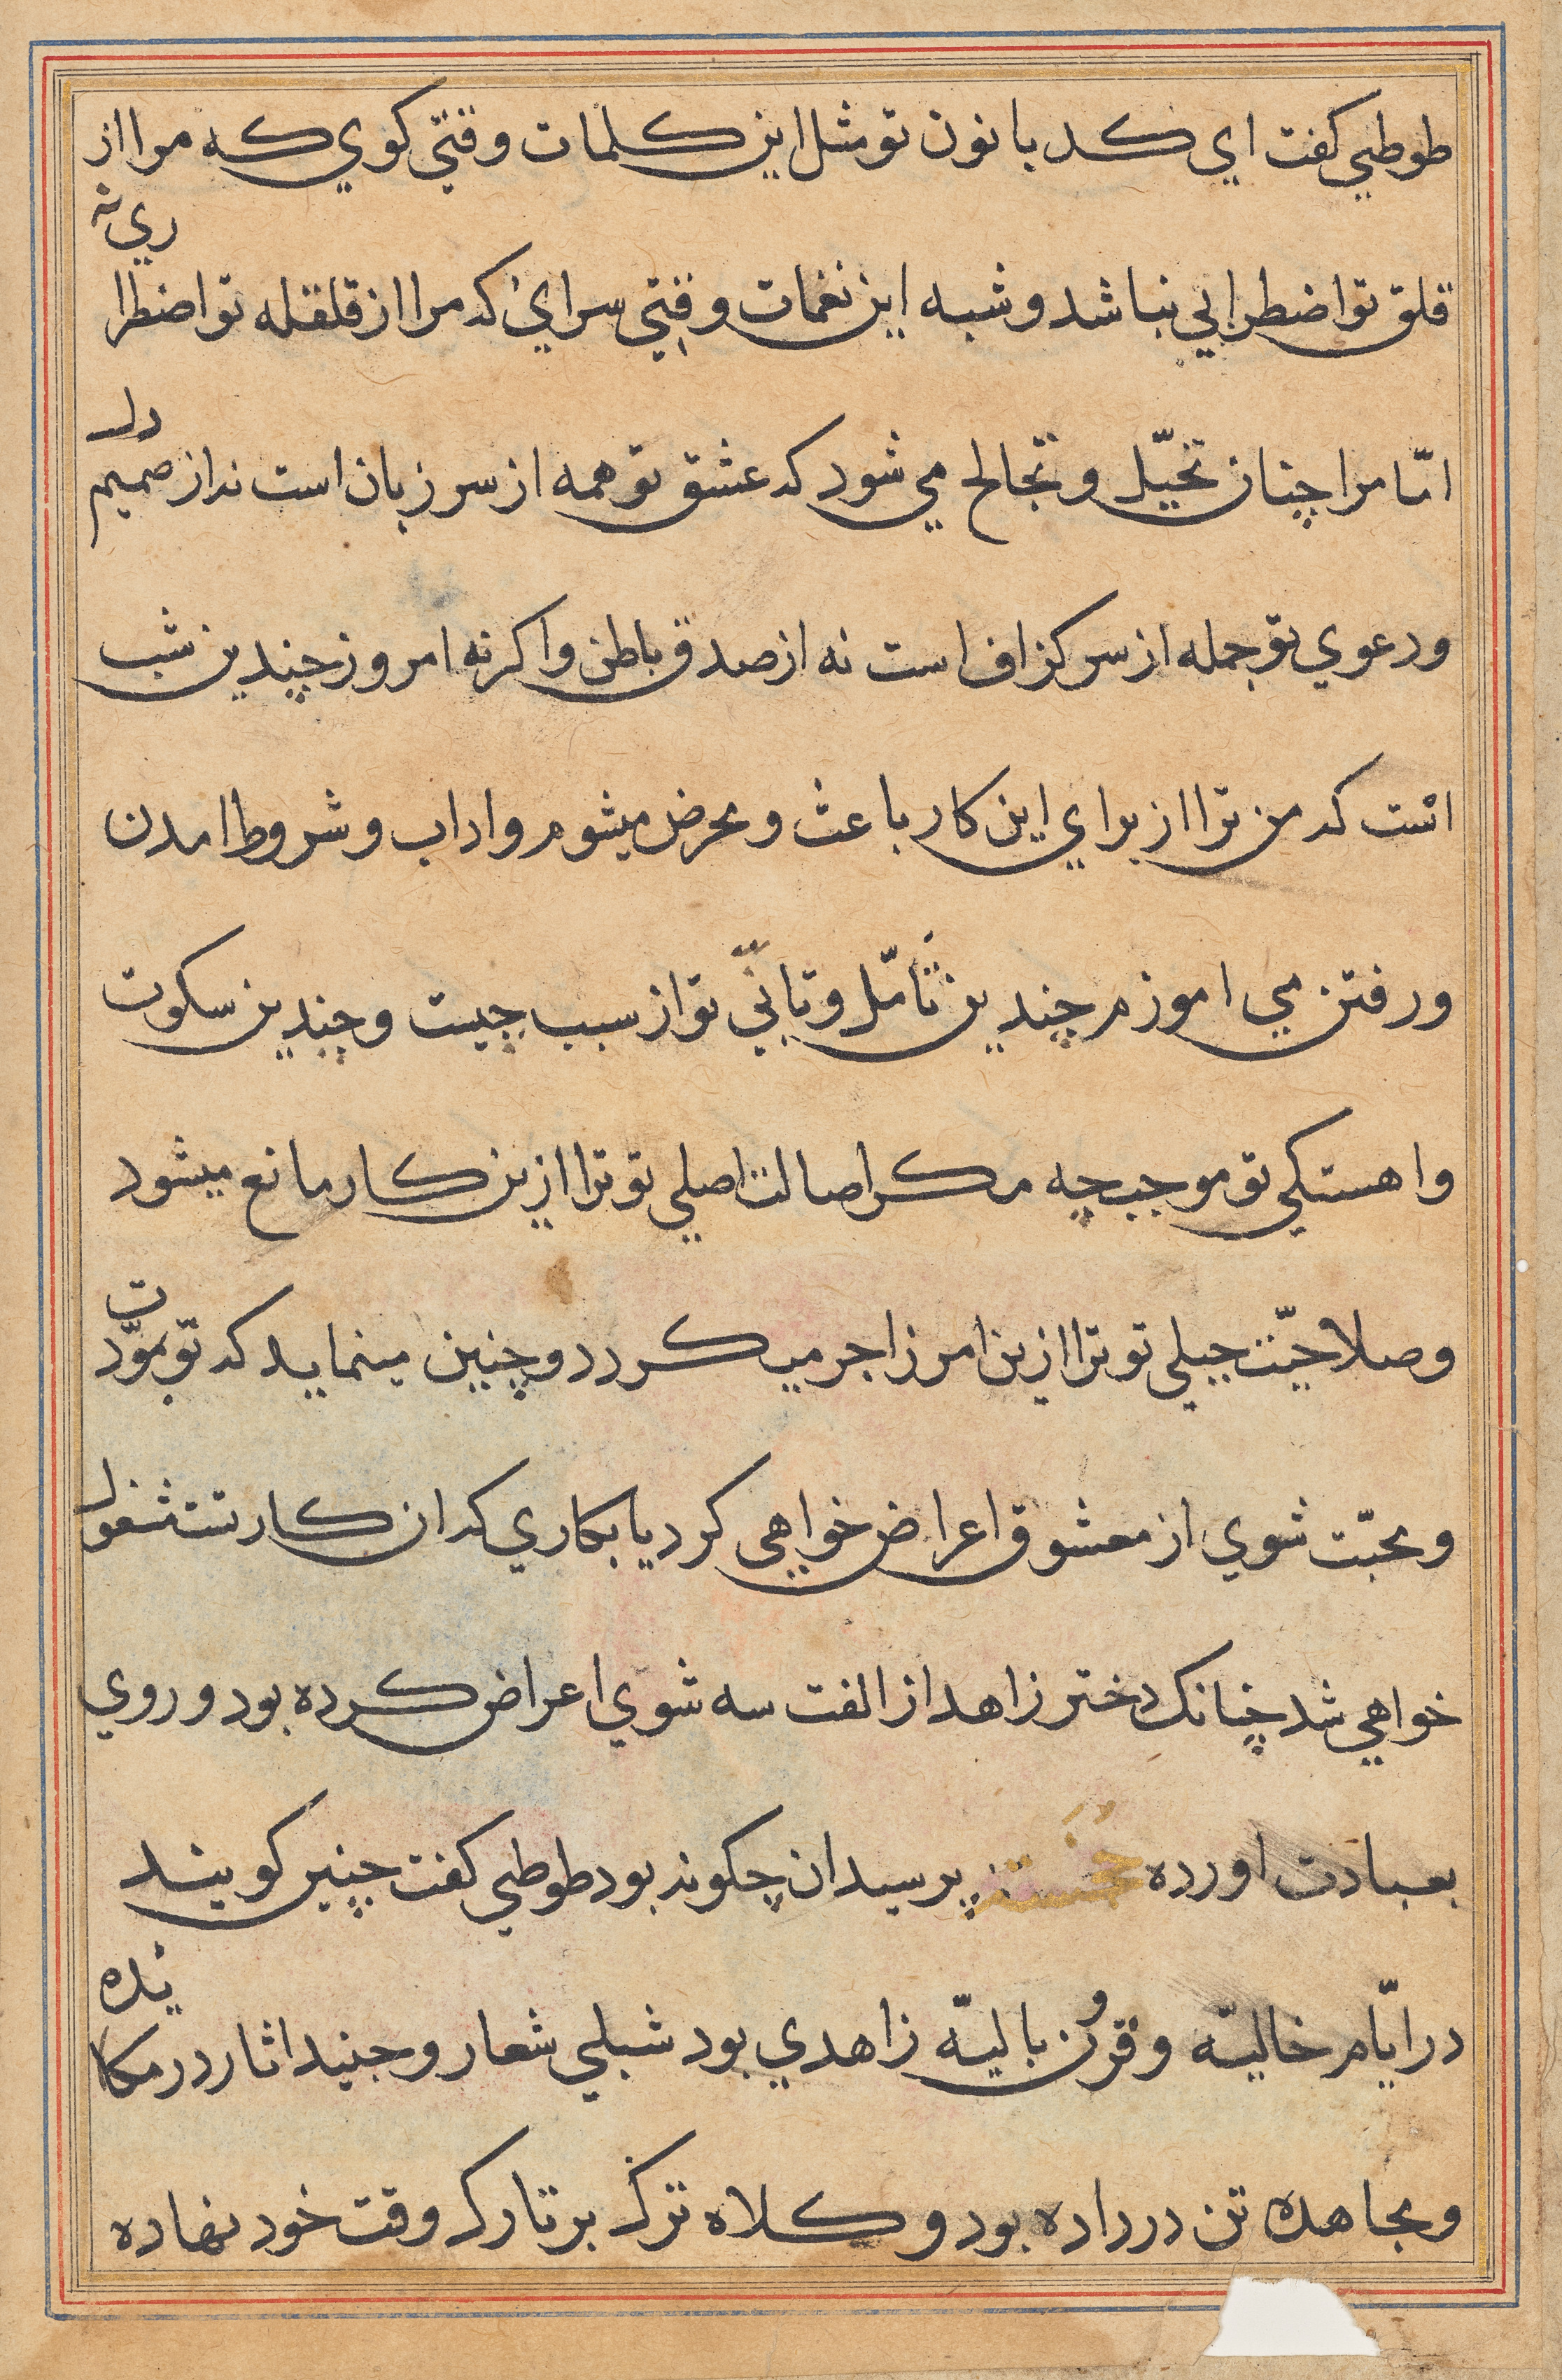 طوطي كفت اي كد بانون تو مثل اين كلمات وقتي كوي كه مرا از
قلق تو اضطرابي نباشد و شبه اين نغمات وقتي سراي كه مرا از قلقله تو اضطراري نه
امّا مرا چنان تخيّل و تخالج مي شود كه عشق تو همه از سر زبان است نه از صميم دل
و دعوي تو جمله از سر كزاف است نه از صدق باطن و اكر نه امروز چندين شب
است كه من ترا از براي اين كار باعث و محرض ميشوم و اداب و شروط امدن
و رفتن مي اموزم چندين تامّل و تانّي تو از سبب چيست و چندين سكوت
و اهستكي تو موجب چه مكر اصالت اصلي تو ترا ازين كار مانع ميشود
و صلاحيّت جبلي تو ترا ازين امر زاجر ميكردد و چنين مينمايد كه تو بمودّت
و محبّت شوي از معشوق اعراض خواهي كرد يا بكاري كه ان كار تست مشغول
خواهي شد چنانك دختر زاهد از الفت سه شوي اعراض كرده بود و روي
بعبادت اورده خجسته پرسيد ان چكونه بود طوطي كفت چنين كويند
در ايّام خاليّه و قرون باليّه زاهدي بود شبلي شعار و جنيد اثار در مكايده
و مجاهده تن در داده بود و كلاه ترك بر تارك وقت خود نهاده